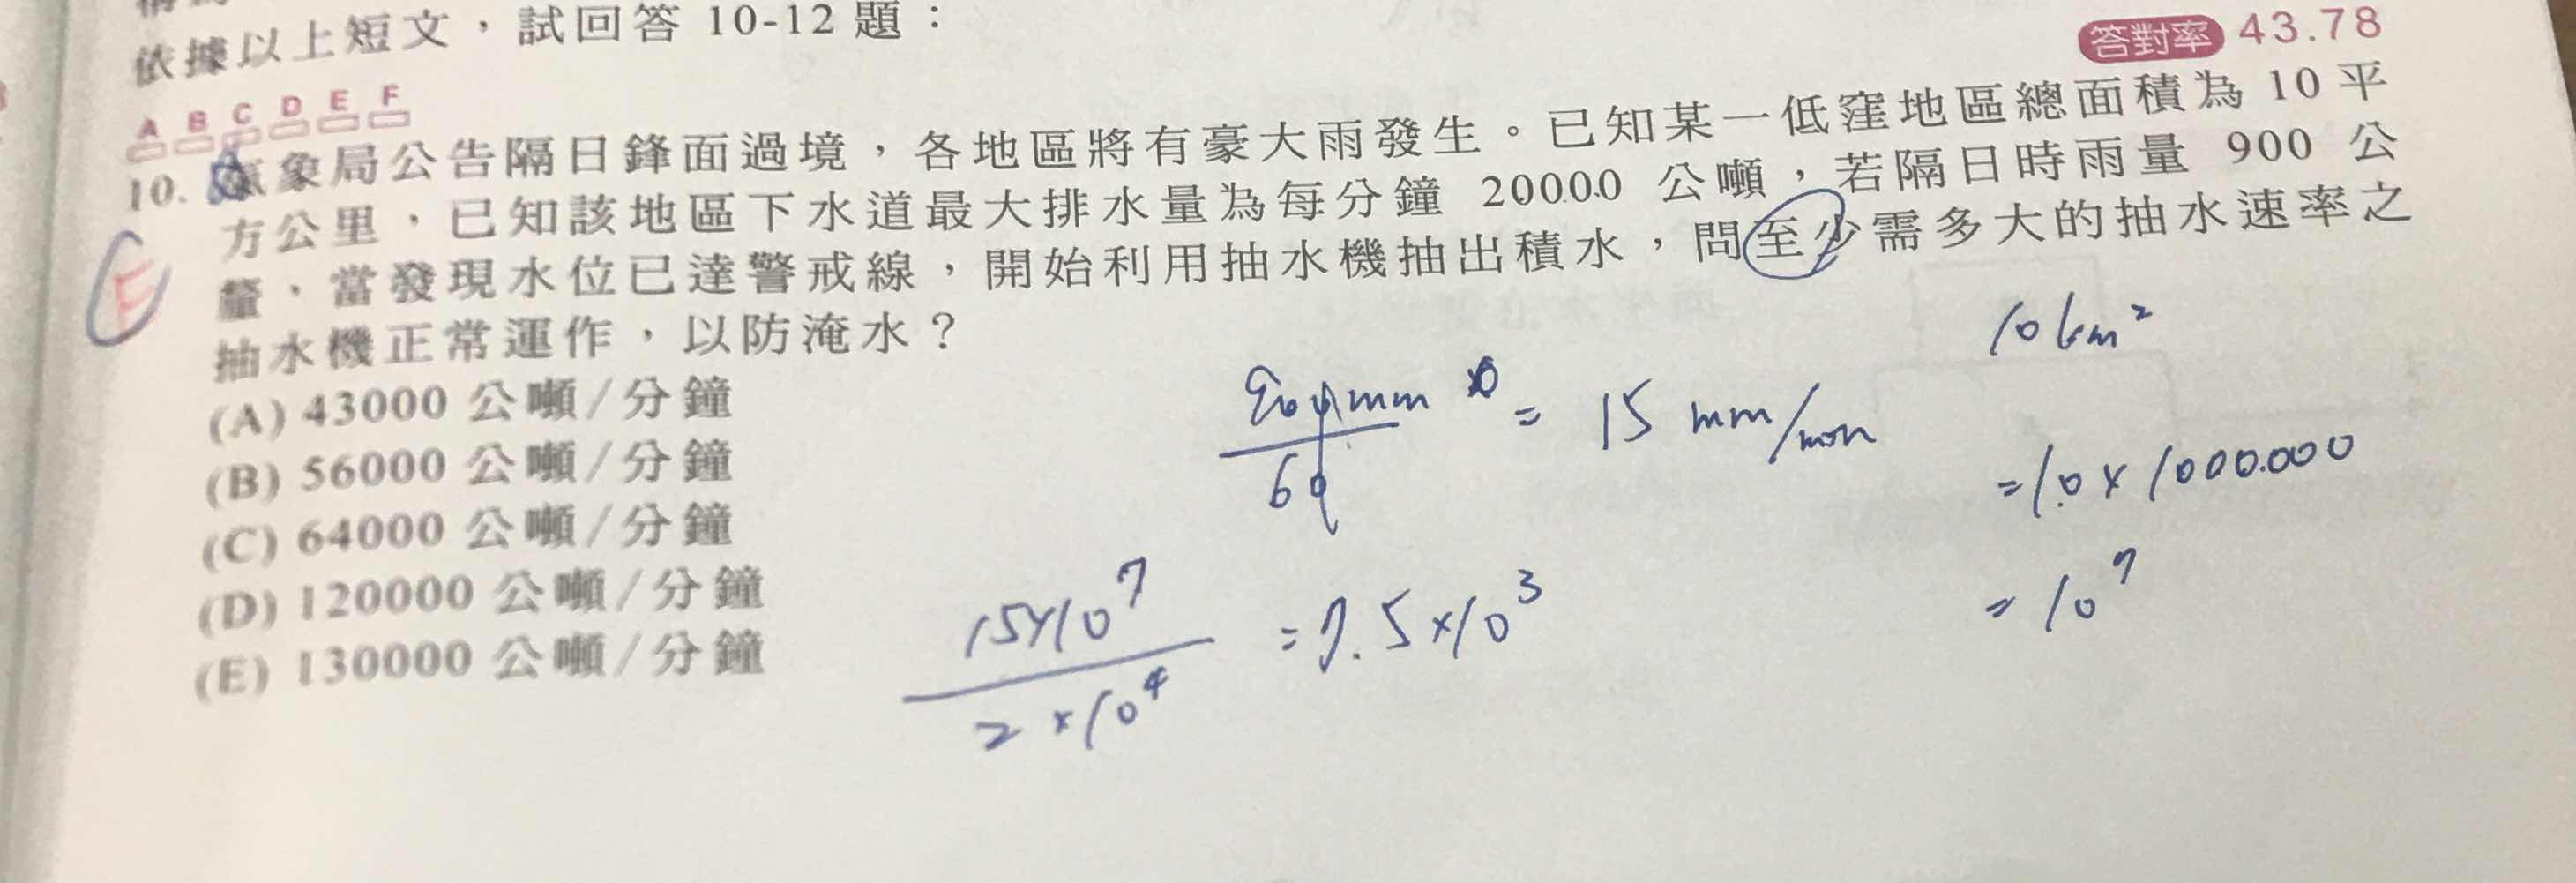 依據以上短文，試回答 10-12 題：
答對率 43.78
A B C D E F
10. 氣象局公告隔日鋒面過境，各地區將有豪大雨發生。已知某一低窪地區總面積為 10 平
方公里，已知該地區下水道最大排水量為每分鐘 20000 公噸，若隔日時雨量 900 公
釐，當發現水位已達警戒線，開始利用抽水機抽出積水，問至少需多大的抽水速率之
抽水機正常運作，以防淹水？
E
(A) 43000 公噸/分鐘
(B) 56000 公噸/分鐘
(C) 64000 公噸/分鐘
(D) 120000 公噸/分鐘
(E) 130000 公噸/分鐘
900 mm
60
= 15 mm/min
10 km²
= 10 × 1000.000
= 10⁷
15×10⁷
2 × 10⁴
= 7.5 × 10³